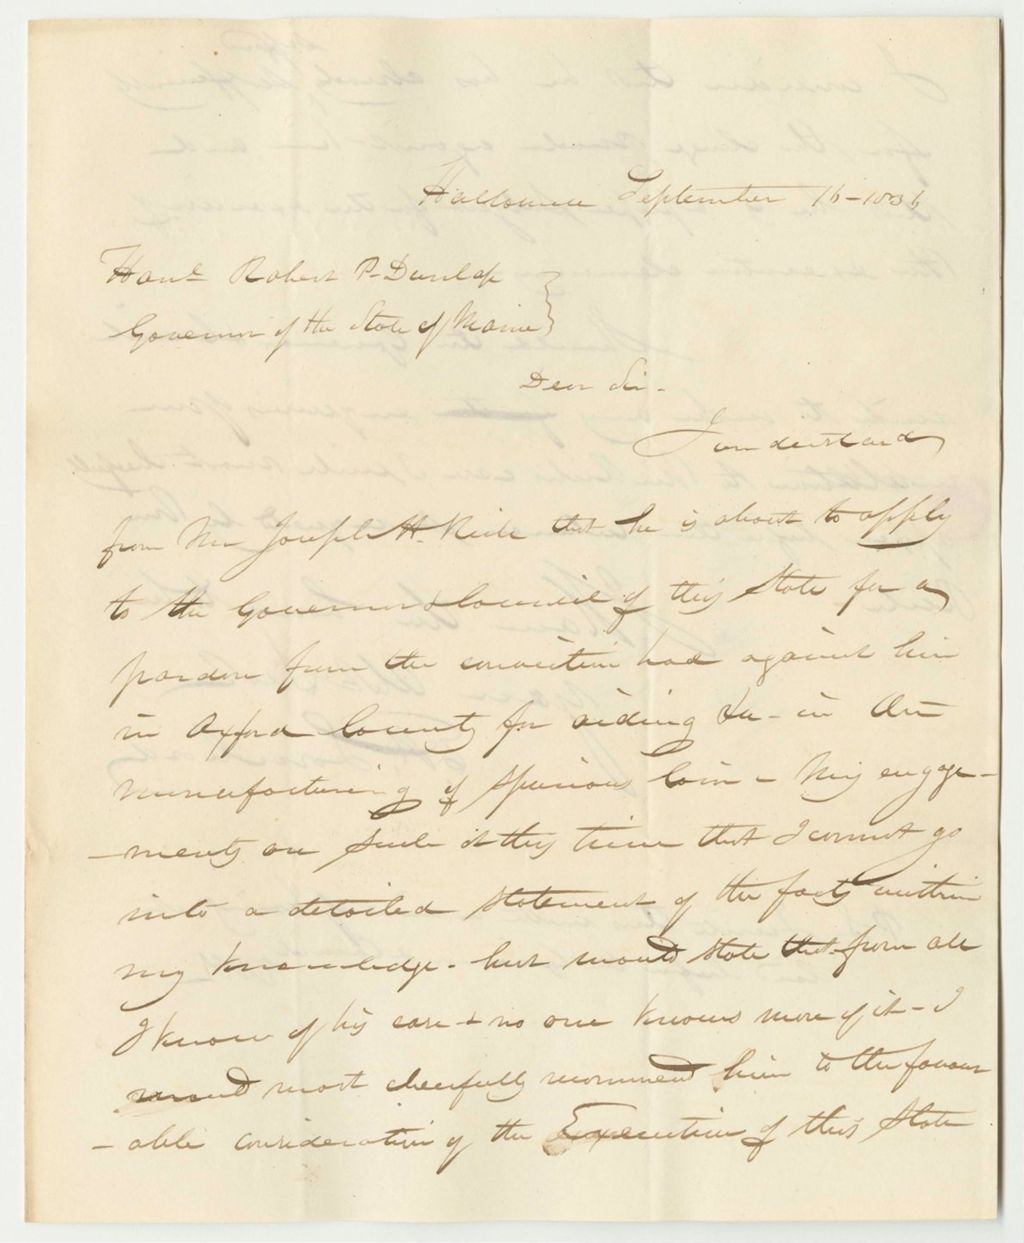 Hallowell September 16-1836
Honl. Robert P. Dunlap
Governor of the State of Maine
Dear Sir-
I understand
from Mr Joseph H. that he is about to apply
to the Governor & Council of this State for a
pardon from the conviction had against him
in Oxford County for aiding &c- in the
manufacturing of spurious Coin - My engage-
-ments are such at this time that I cannot go
into a detailed statement of the facts within
my knowledge - but would state that from all
I know of his case & no one knows more of it - I
would most cheerfully recommend him to the favour
-able consideration of the Executive of this State